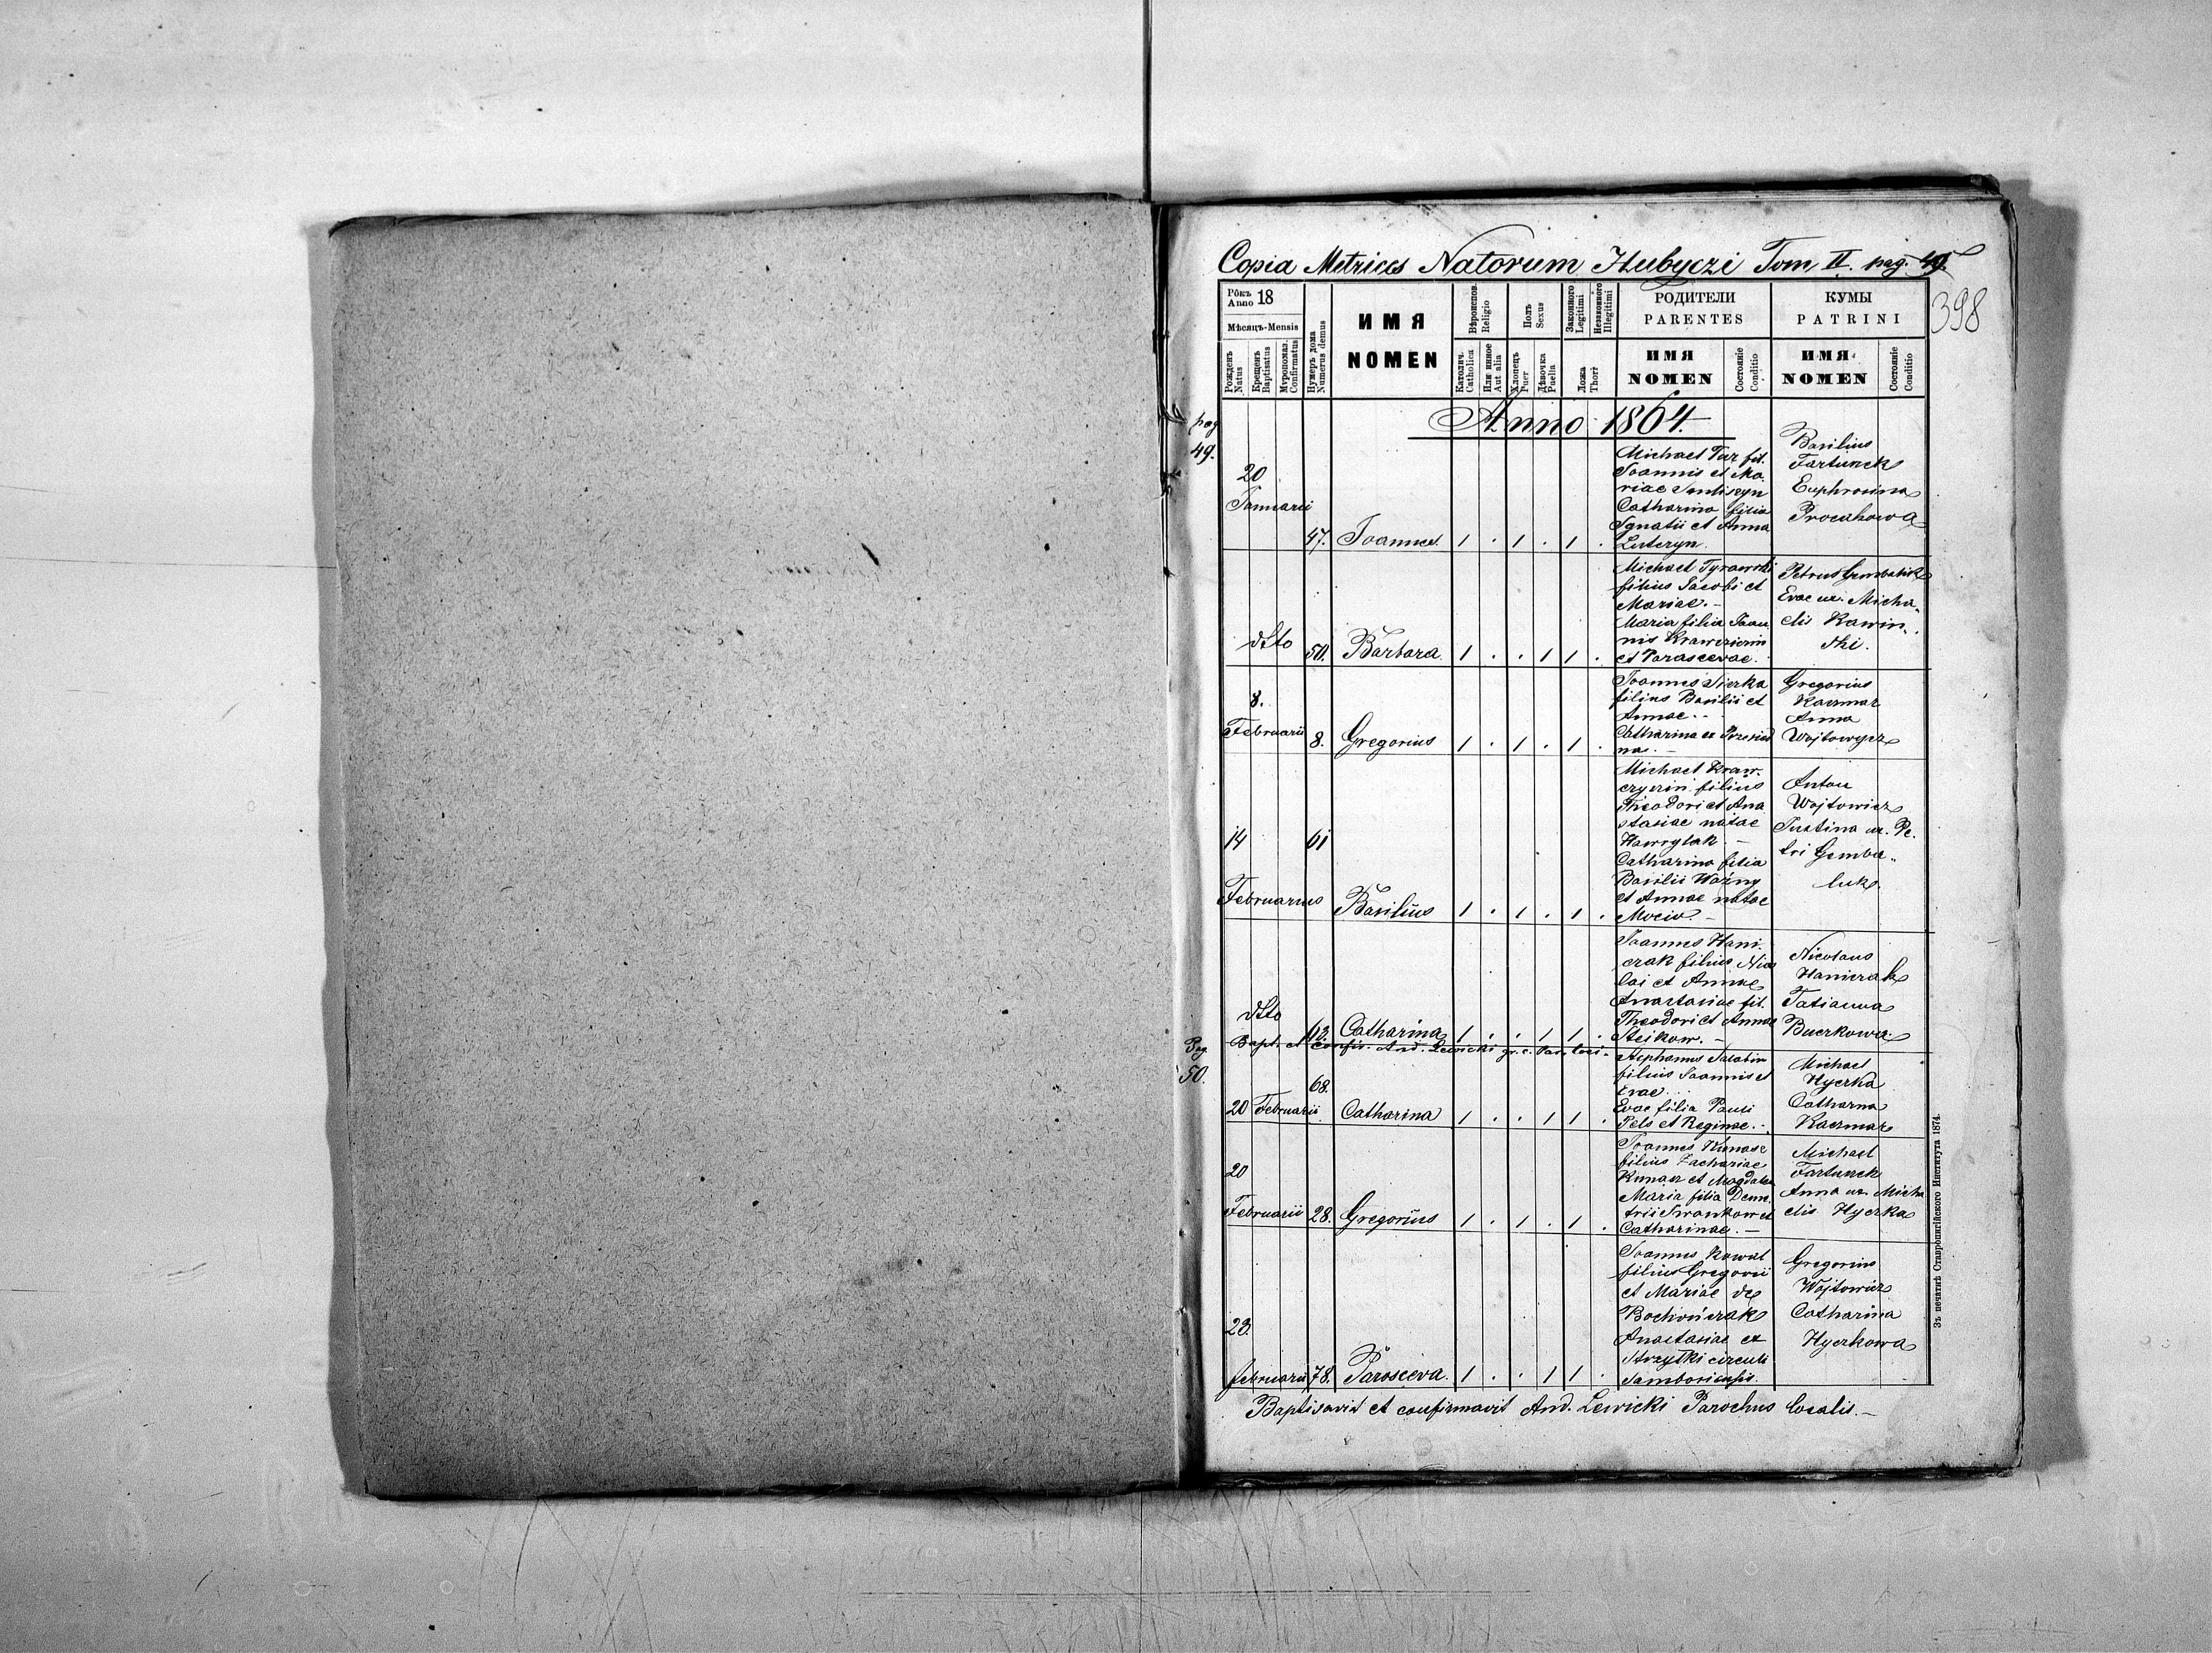 Copia Metrices Natorum Hubyczi Tom II. pag. 49.
398
Рôкъ Anno 18
Мѣсяцъ-Mensis
Рожденъ Natus
Крещенъ Baptisatus
Мѵропомаз. Confirmatus
Нумеръ дома Numerus domus
ИМЯ
NOMEN
Вѣроисповѣд. Religio
Католич. Catholica
Или инное Aut alia
Полъ Sexus
Хлопець Puer
Дѣвочка Puella
Законного Legitimi
Незаконного Illegitimi
Ложа Thori
РОДИТЕЛИ
PARENTES
ИМЯ
NOMEN
Состояніе Conditio
КУМЫ
PATRINI
ИМЯ
NOMEN
Состояніе Conditio
Anno 1864.
pag
49.
20
Januarii
47. Joannes 1 . 1 . 1 .
Michael Tur fil.
Joannis et Ma
riae
Catharina filia
Ignatii et Anna
Luteryn.
Basilius
Fartunek
Euphrosina
dtto 50. Barbara 1 . . 1 1 .
Michael Tyrawski
filius Jacobi et
Mariae. -
Maria filia Joan
nis
et Parascevae.
Petrus
Evae ux. Micha
elis Rawin
ski.
8.
Februarii 8. Gregorius 1 . 1 . 1 .
Joannes
filius Basilii et
Annae. -
Catharina
na. -
Gregorius
Kaczmar
Anna
Wojtowycz
14 61
Februarius Basilius 1 . 1 . 1 .
Michael Kraw
filius
Theodori et Ana
stasiae natae
Hawrylak -
Catharina filia
Basilii Woźny
et Annae natae
Anton
Wojtowicz
Justina ux. Pe
tri Gemba
luk.
dtto
62 Catharina 1 . . 1 1 .
Joannes Hani
czak filius Nico
lai et Annae
Anastasiae fil.
Theodori et Annae
Steikow. -
Nicolaus
Haniczak
Tatianna
Buczkowa
Bapt. et Confir. And. Lewicki gr. c. Par. loci.
Pag.
50.
68.
20 Februarii Catharina 1 . . 1 1 .
Stephanus
filius Joannis et
Evae
Evae filia Pauli
Pels et Reginae. -
Michael
Hyczka
Catharna
Kaczmar
20
Februarii 28. Gregorius 1 . 1 . 1 .
Joannes Kunasz
filius Zachariae
Kunasz et Magdalen
Maria filia Deme
trii Iwankow et
Catharinae. -
Michael
Fartunek
Anna ux. Micha
elis Hyczka
23.
februarii 78. Parasceva. 1 . . 1 1 .
Joannes Kowal
filius Gregorii
et Mariae de
Bochończak
Anastasiae ex
Strzyłki circuli
Samboriensis.
Gregorius
Wojtowicz
Catharina
Hyczkowa
Baptisavit et confirmavit And. Lewicki Parochus localis. -
Зъ печатнѣ Ставропигійского Института 1874.